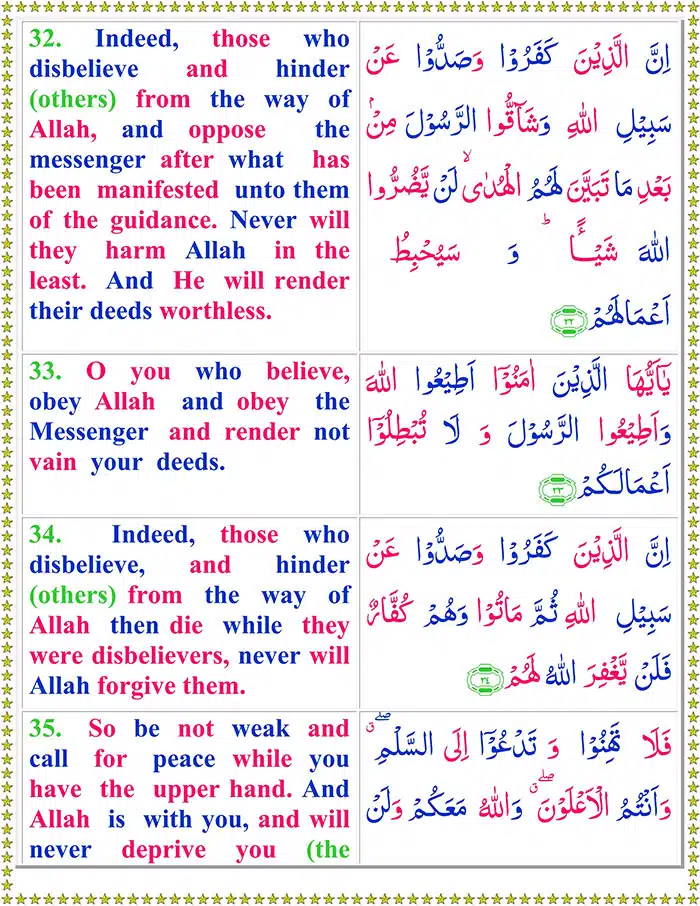 32. Indeed, those who
disbelieve and hinder
(others) from the way of
Allah, and oppose the
messenger after what has
been manifested unto them
of the guidance. Never will
they harm Allah in the
least. And He will render
their deeds worthless.
اِنَّ الَّذِيْنَ كَفَرُوْا وَصَدُّوْا عَنْ
سَبِيْلِ اللّٰهِ وَشَآقُّوا الرَّسُوْلَ مِنْۢ
بَعْدِ مَا تَبَيَّنَ لَهُمُ الْهُدٰىۙ لَنْ يَّضُرُّوا
اللّٰهَ شَيْـًٔـاؕ وَ سَيُحْبِطُ
اَعْمَالَهُمْ ۝۳۲
33. O you who believe,
obey Allah and obey the
Messenger and render not
vain your deeds.
يٰۤاَيُّهَا الَّذِيْنَ اٰمَنُوْۤا اَطِيْعُوا اللّٰهَ
وَاَطِيْعُوا الرَّسُوْلَ وَ لَا تُبْطِلُوْۤا
اَعْمَالَكُمْ ۝۳۳
34. Indeed, those who
disbelieve, and hinder
(others) from the way of
Allah then die while they
were disbelievers, never will
Allah forgive them.
اِنَّ الَّذِيْنَ كَفَرُوْا وَصَدُّوْا عَنْ
سَبِيْلِ اللّٰهِ ثُمَّ مَاتُوْا وَهُمْ كُفَّارٌ
فَلَنْ يَّغْفِرَ اللّٰهُ لَهُمْ ۝۳۴
35. So be not weak and
call for peace while you
have the upper hand. And
Allah is with you, and will
never deprive you (the
فَلَا تَهِنُوْا وَ تَدْعُوْۤا اِلَى السَّلْمِ ۖۗ
وَاَنْتُمُ الْاَعْلَوْنَ ۖۗ وَاللّٰهُ مَعَكُمْ وَلَنْ